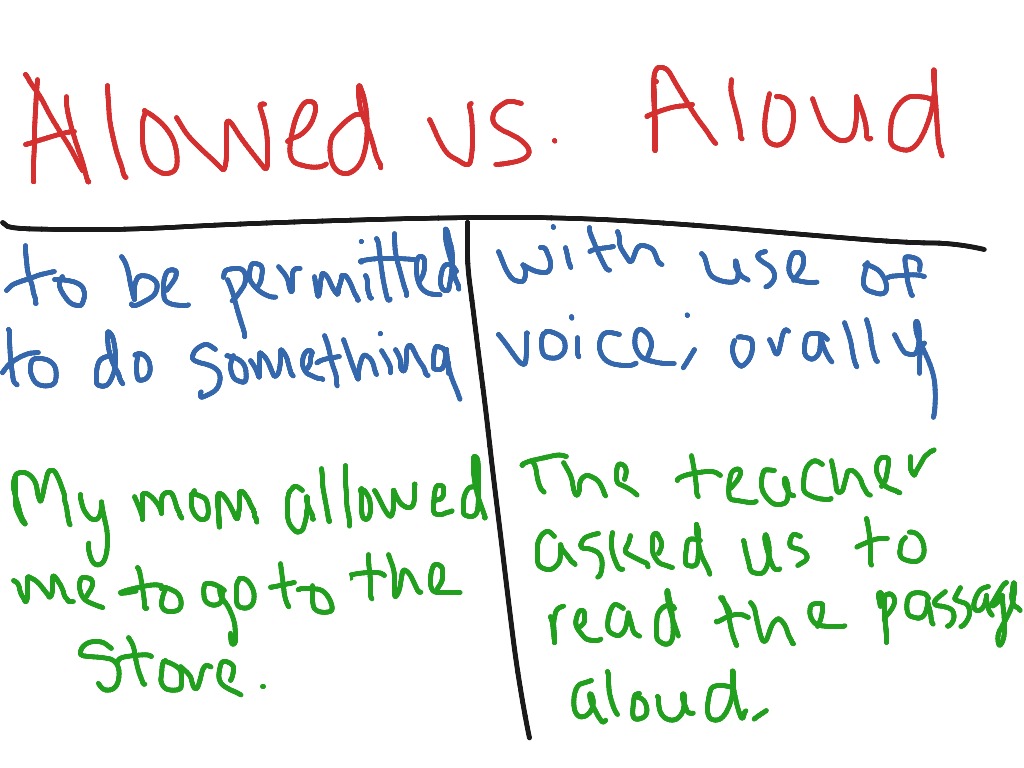 Allowed vs. Aloud
to be permitted
to do something
with use of
voice; orally
My mom allowed
me to go to the
store.
The teacher
asked us to
read the passage
aloud.